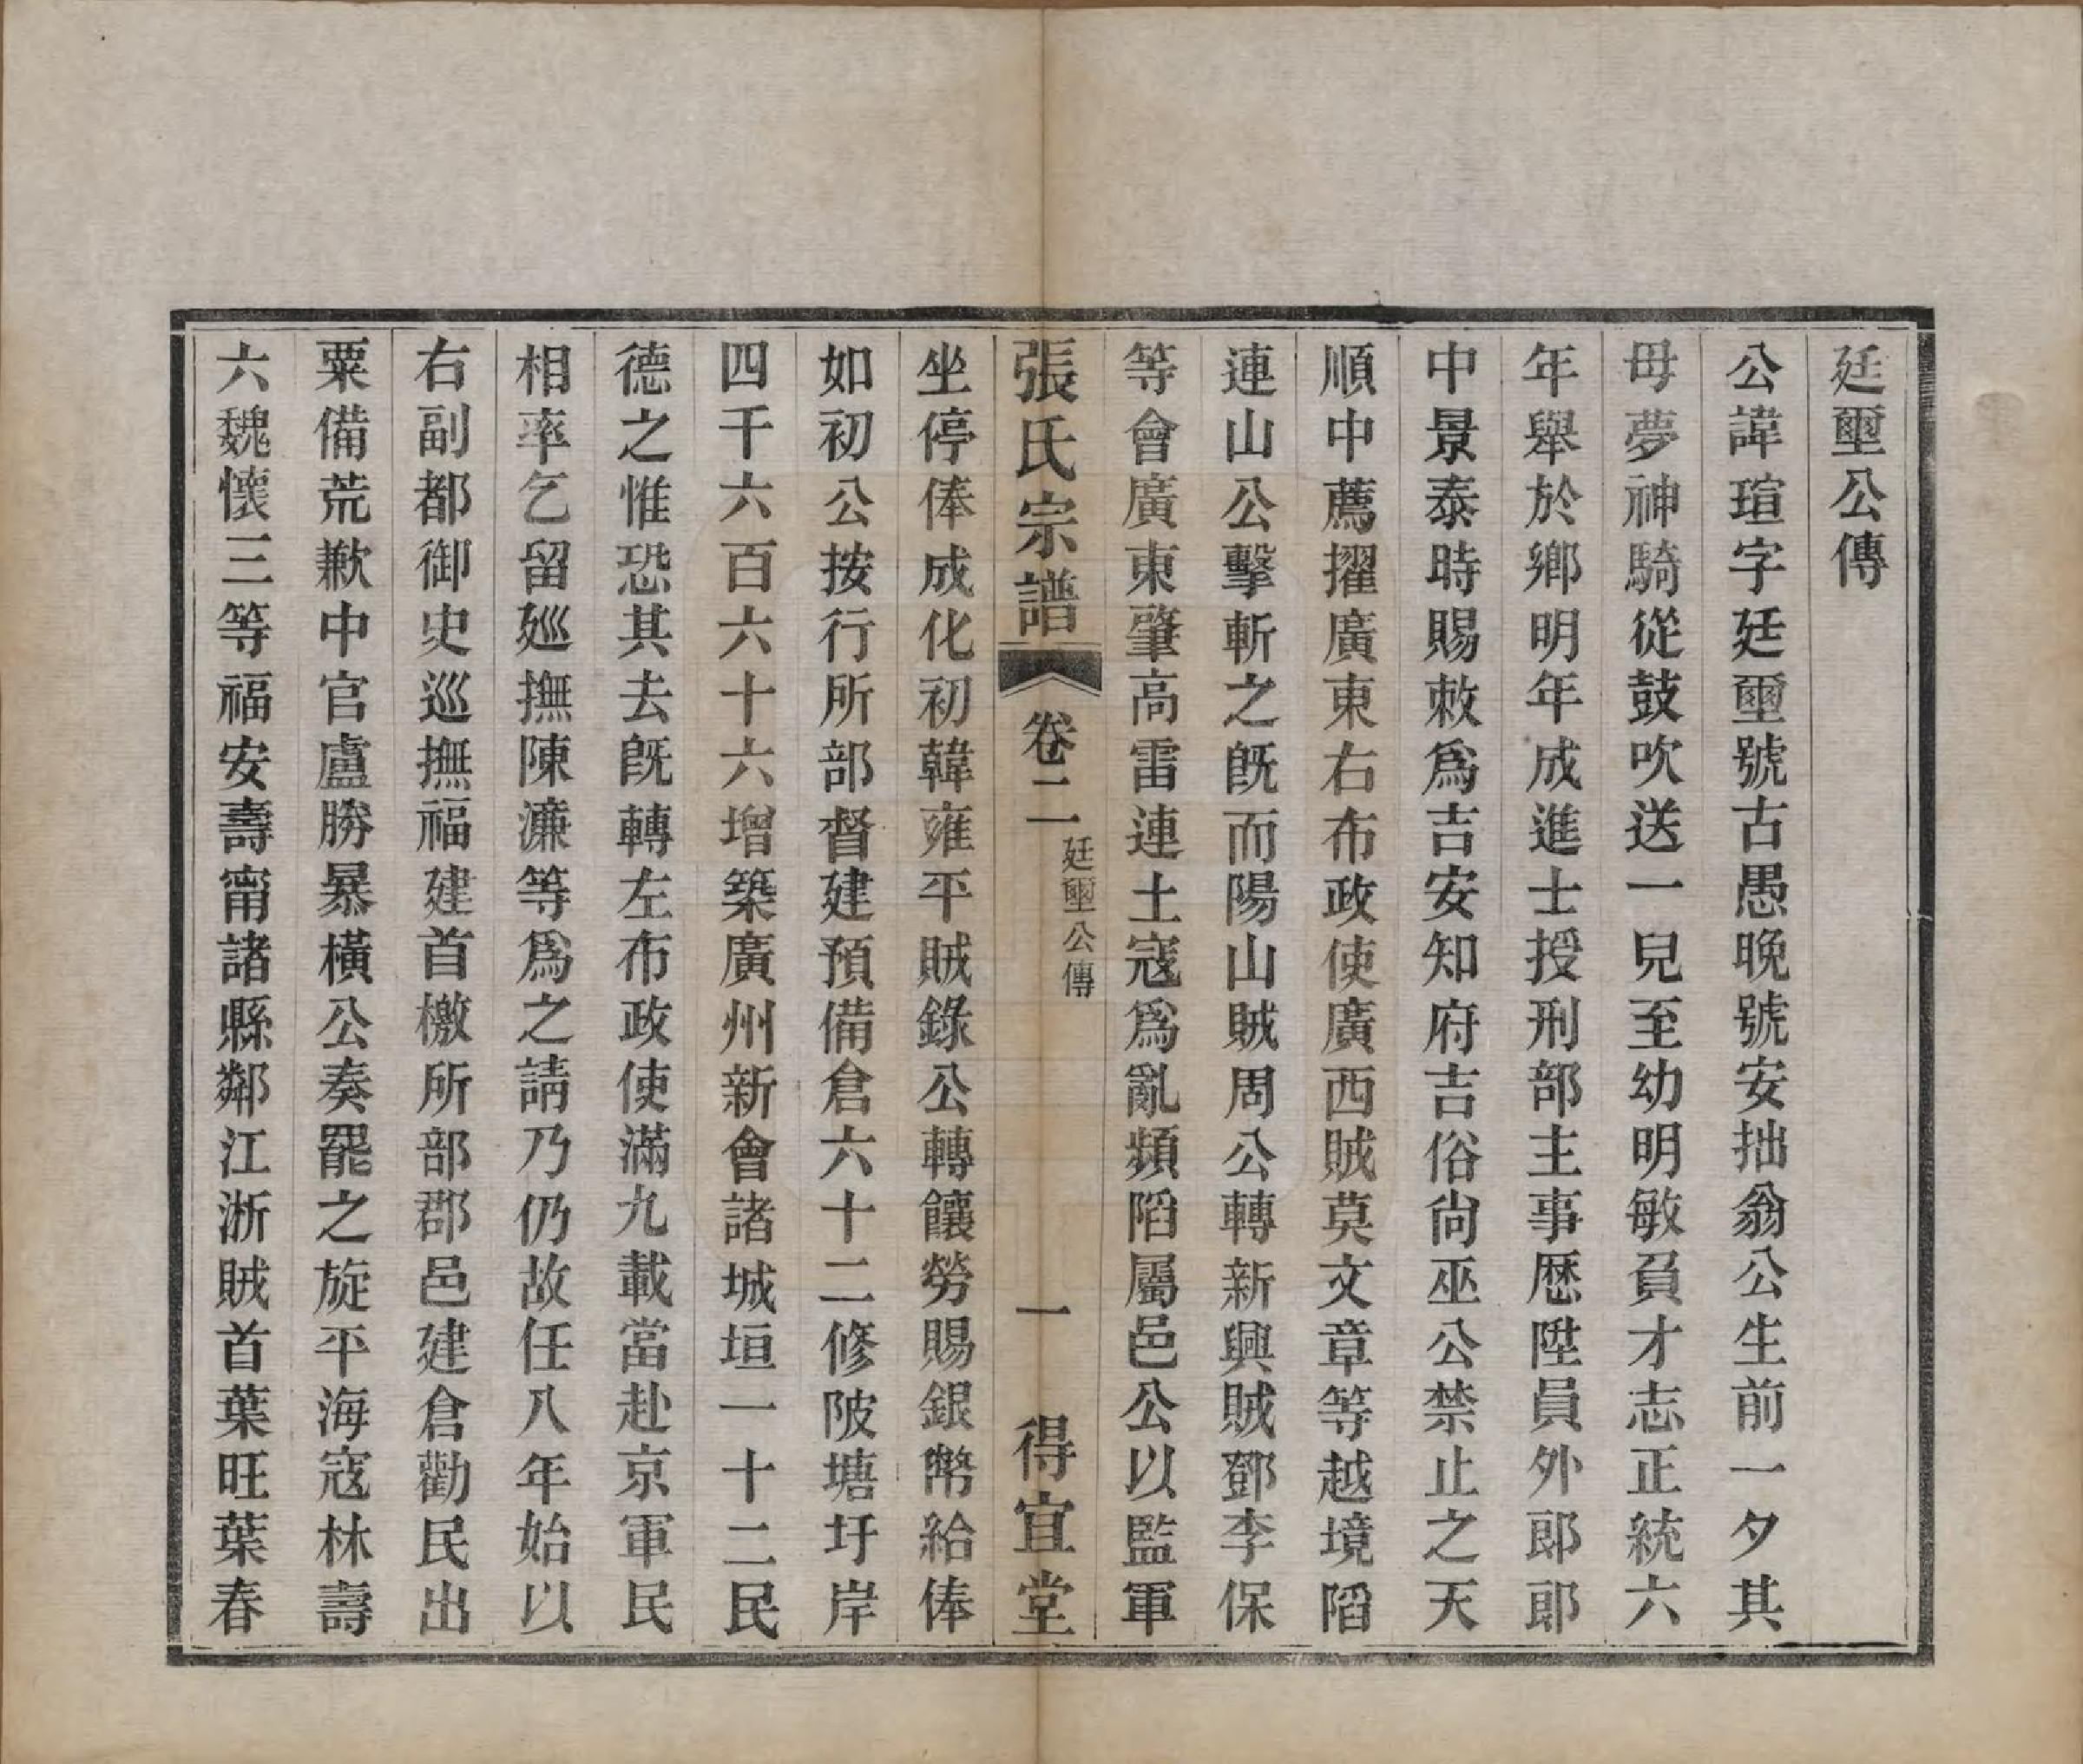 廷璽公傳
公諱瑄字廷璽號古愚晚號安拙翁公生前一夕其
母夢神騎從鼓吹送一兒至幼明敏負才志正統六
年舉於鄉明年成進士授刑部主事歷陞員外郎郎
中景泰時賜敕爲吉安知府吉俗尙巫公禁止之天
順中薦擢廣東右布政使廣西賊莫文章等越境陷
連山公擊斬之旣而陽山賊周公轉新興賊鄧李保
等會廣東肇高雷連土寇爲亂頻陷屬邑公以監軍
張氏宗譜
卷二
廷璽公傳
一
得宜堂
坐停俸成化初韓雍平賊錄公轉饟勞賜銀幣給俸
如初公按行所部督建預備倉六十二修陂塘圩岸
四千六百六十六增築廣州新會諸城垣一十二民
德之惟恐其去旣轉左布政使滿九載當赴京軍民
相率乞留廵撫陳濂等爲之請乃仍故任八年始以
右副都御史巡撫福建首檄所部郡邑建倉勸民出
粟備荒歉中官盧勝暴橫公奏罷之旋平海寇林壽
六魏懷三等福安壽甯諸縣鄰江浙賊首葉旺葉春